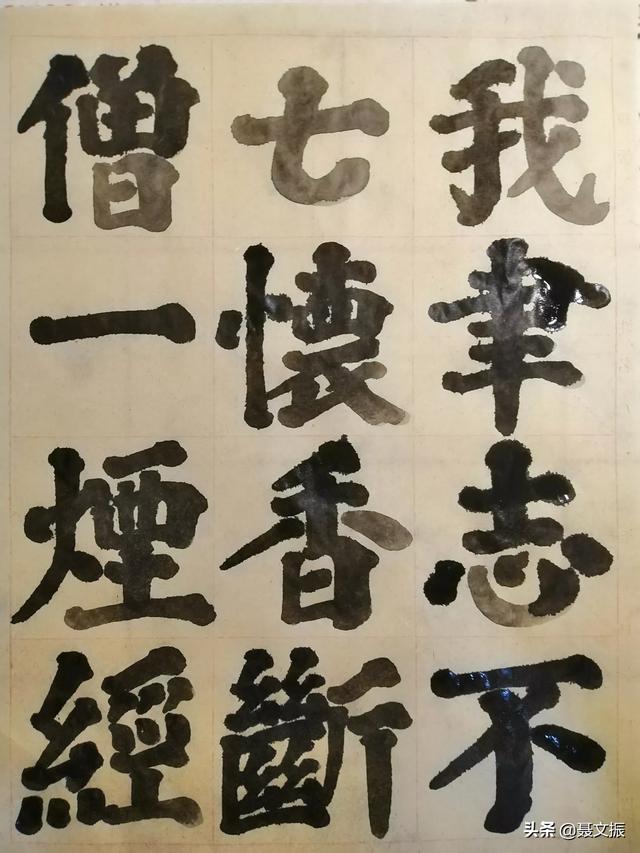 我聿志不
七懷香斷
僧一煙經
头条 @聂文振